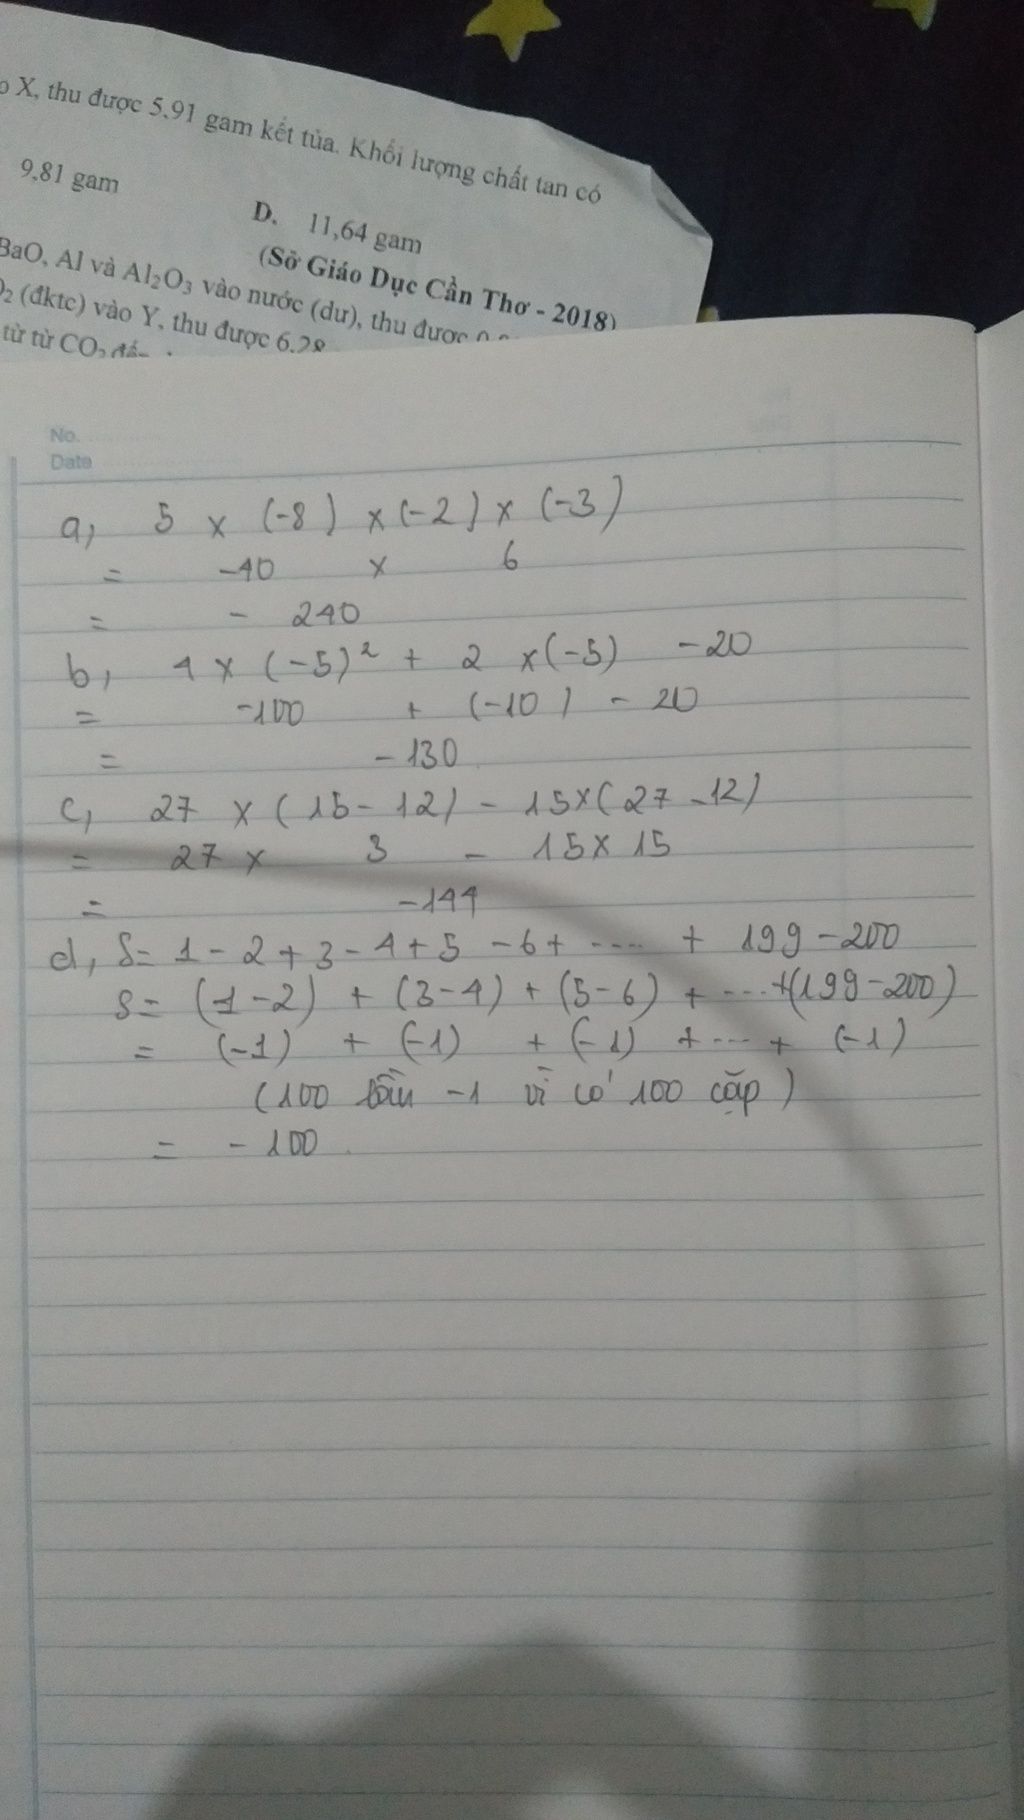 X, thu được 5,91 gam kết tủa. Khối lượng chất tan có
9,81 gam
D. 11,64 gam
(Sở Giáo Dục Cần Thơ - 2018)
BaO, Al và Al2O3 vào nước (dư), thu được
(đktc) vào Y, thu được 6,28
từ từ CO2
No.
Date
a, 5 x (-8) x (-2) x (-3)
= -40 x 6
= - 240
b, 4 x (-5)² + 2 x (-5) - 20
= -100 + (-10) - 20
= -130
c, 27 x (15 - 12) - 15 x (27 - 12)
= 27 x 3 - 15 x 15
= -144
d, S = 1 - 2 + 3 - 4 + 5 - 6 + ..... + 199 - 200
S = (1 - 2) + (3 - 4) + (5 - 6) + .... + (199 - 200)
= (-1) + (-1) + (-1) + ... + (-1)
(100 lần -1 vì có 100 cặp)
= - 100.